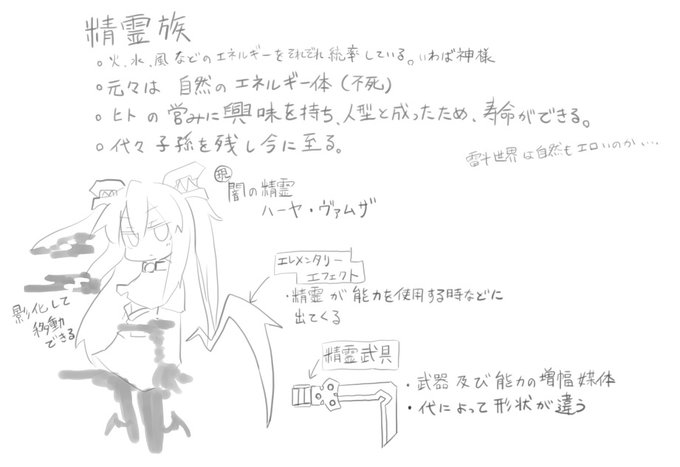 精霊族
○火、水、風などのエネルギーをそれぞれ統率している。いわば神様
○元々は 自然のエネルギー体(不死)
○ヒトの営みに興味を持ち、人型と成ったため、寿命ができる。
○代々子孫を残し今に至る。
世界は自然もエロいのか…
現
闇の精霊
ハーヤ・ヴァムザ
影化して
移動
できる
エレメンタリー
エフェクト
・精霊が能力を使用する時などに
出てくる
精霊武具
・武器及び能力の増幅媒体
・代によって形状が違う